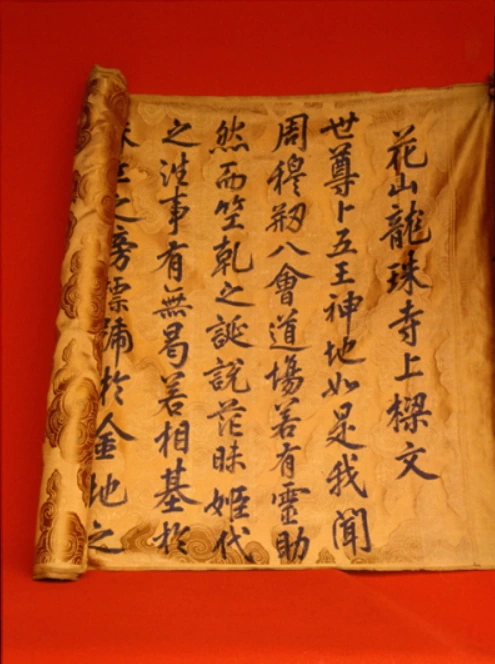 花山龍珠寺上樑文
世尊卜五王神地如是我聞
周穆刱八會道場若有靈助
然而竺乾之誕說茫昧姬代
之往事有無曷若相基於
之旁標號於金地之